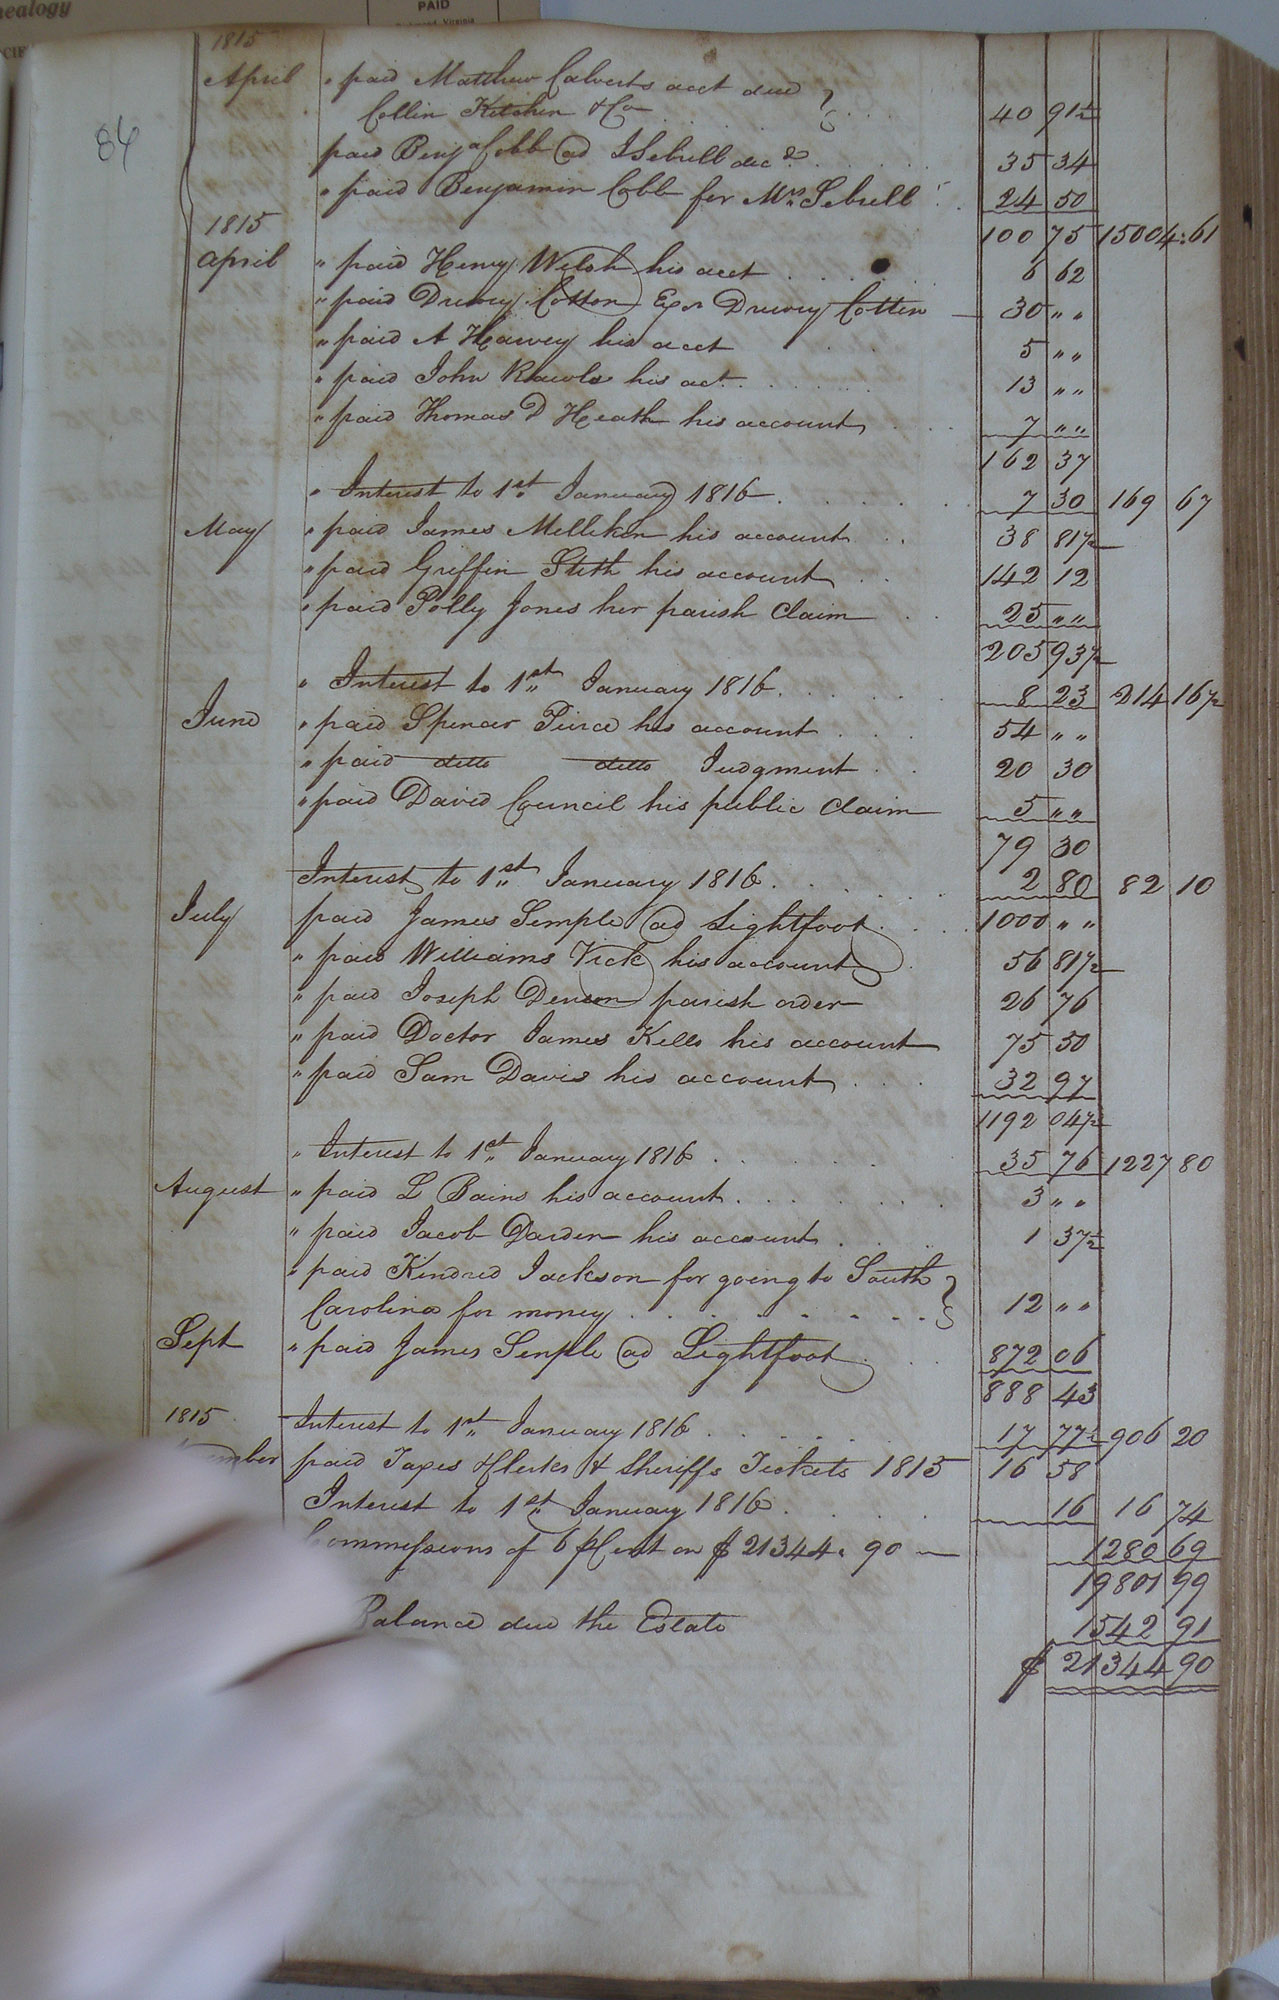 nealogy
PAID
Richmond, Virginia
CIE
86
1815
April " paid Matthew Calverts acct due
Collin Kitchen & Co 40 91½
paid Benja Cobb ad J Sebrell decd 35 34
" paid Benjamin Cobb for Mrs Sebrell 24 50
1815 100 75 15004:61
April " paid Henry Welsh his acct 6 62
" paid Drewry Cotton Exr Drewry Cotten 30 " "
" paid A Harvey his acct 5 " "
" paid John Rawls his act 13 " "
" paid Thomas D Heath his account 7 " "
162 37
" Interest to 1st January 1816 7 30 169 67
May " paid James Milliken his account 38 81½
" paid Griffin Stith his account 142 12
" paid Polly Jones her parish Claim 25 " "
205 93½
" Interest to 1st January 1816 8 23 214 16½
June " paid Spencer Peirce his account 54 " "
" paid ditto ditto Judgment 20 30
" paid David Council his public Claim 5 " "
79 30
Interest to 1st January 1816 2 80 82 10
July paid James Semple ad Lightfoot 1000 " "
" paid Williams Vick his account 56 81½
" paid Joseph Denson parish order 26 76
" paid Doctor James Kello his account 75 50
" paid Sam Davis his account 32 97
1192 04½
" Interest to 1st January 1816 35 76 1227 80
August " paid L Bains his account 3 " "
" paid Jacob Darden his account 1 37½
" paid Kindred Jackson for going to South
Carolina for money 12 " "
Sept " paid James Semple ad Lightfoot 872 06
888 43
1815 Interest to 1st January 1816 17 77½ 906 20
ember paid Taxes Clerks & Sheriffs Tickets 1815 16 58
Interest to 1st January 1816 16 16 74
Commissions of 6 pCent on $ 21344.90 1280 69
19801 99
Balance due the Estate 1542 91
$ 21344 90